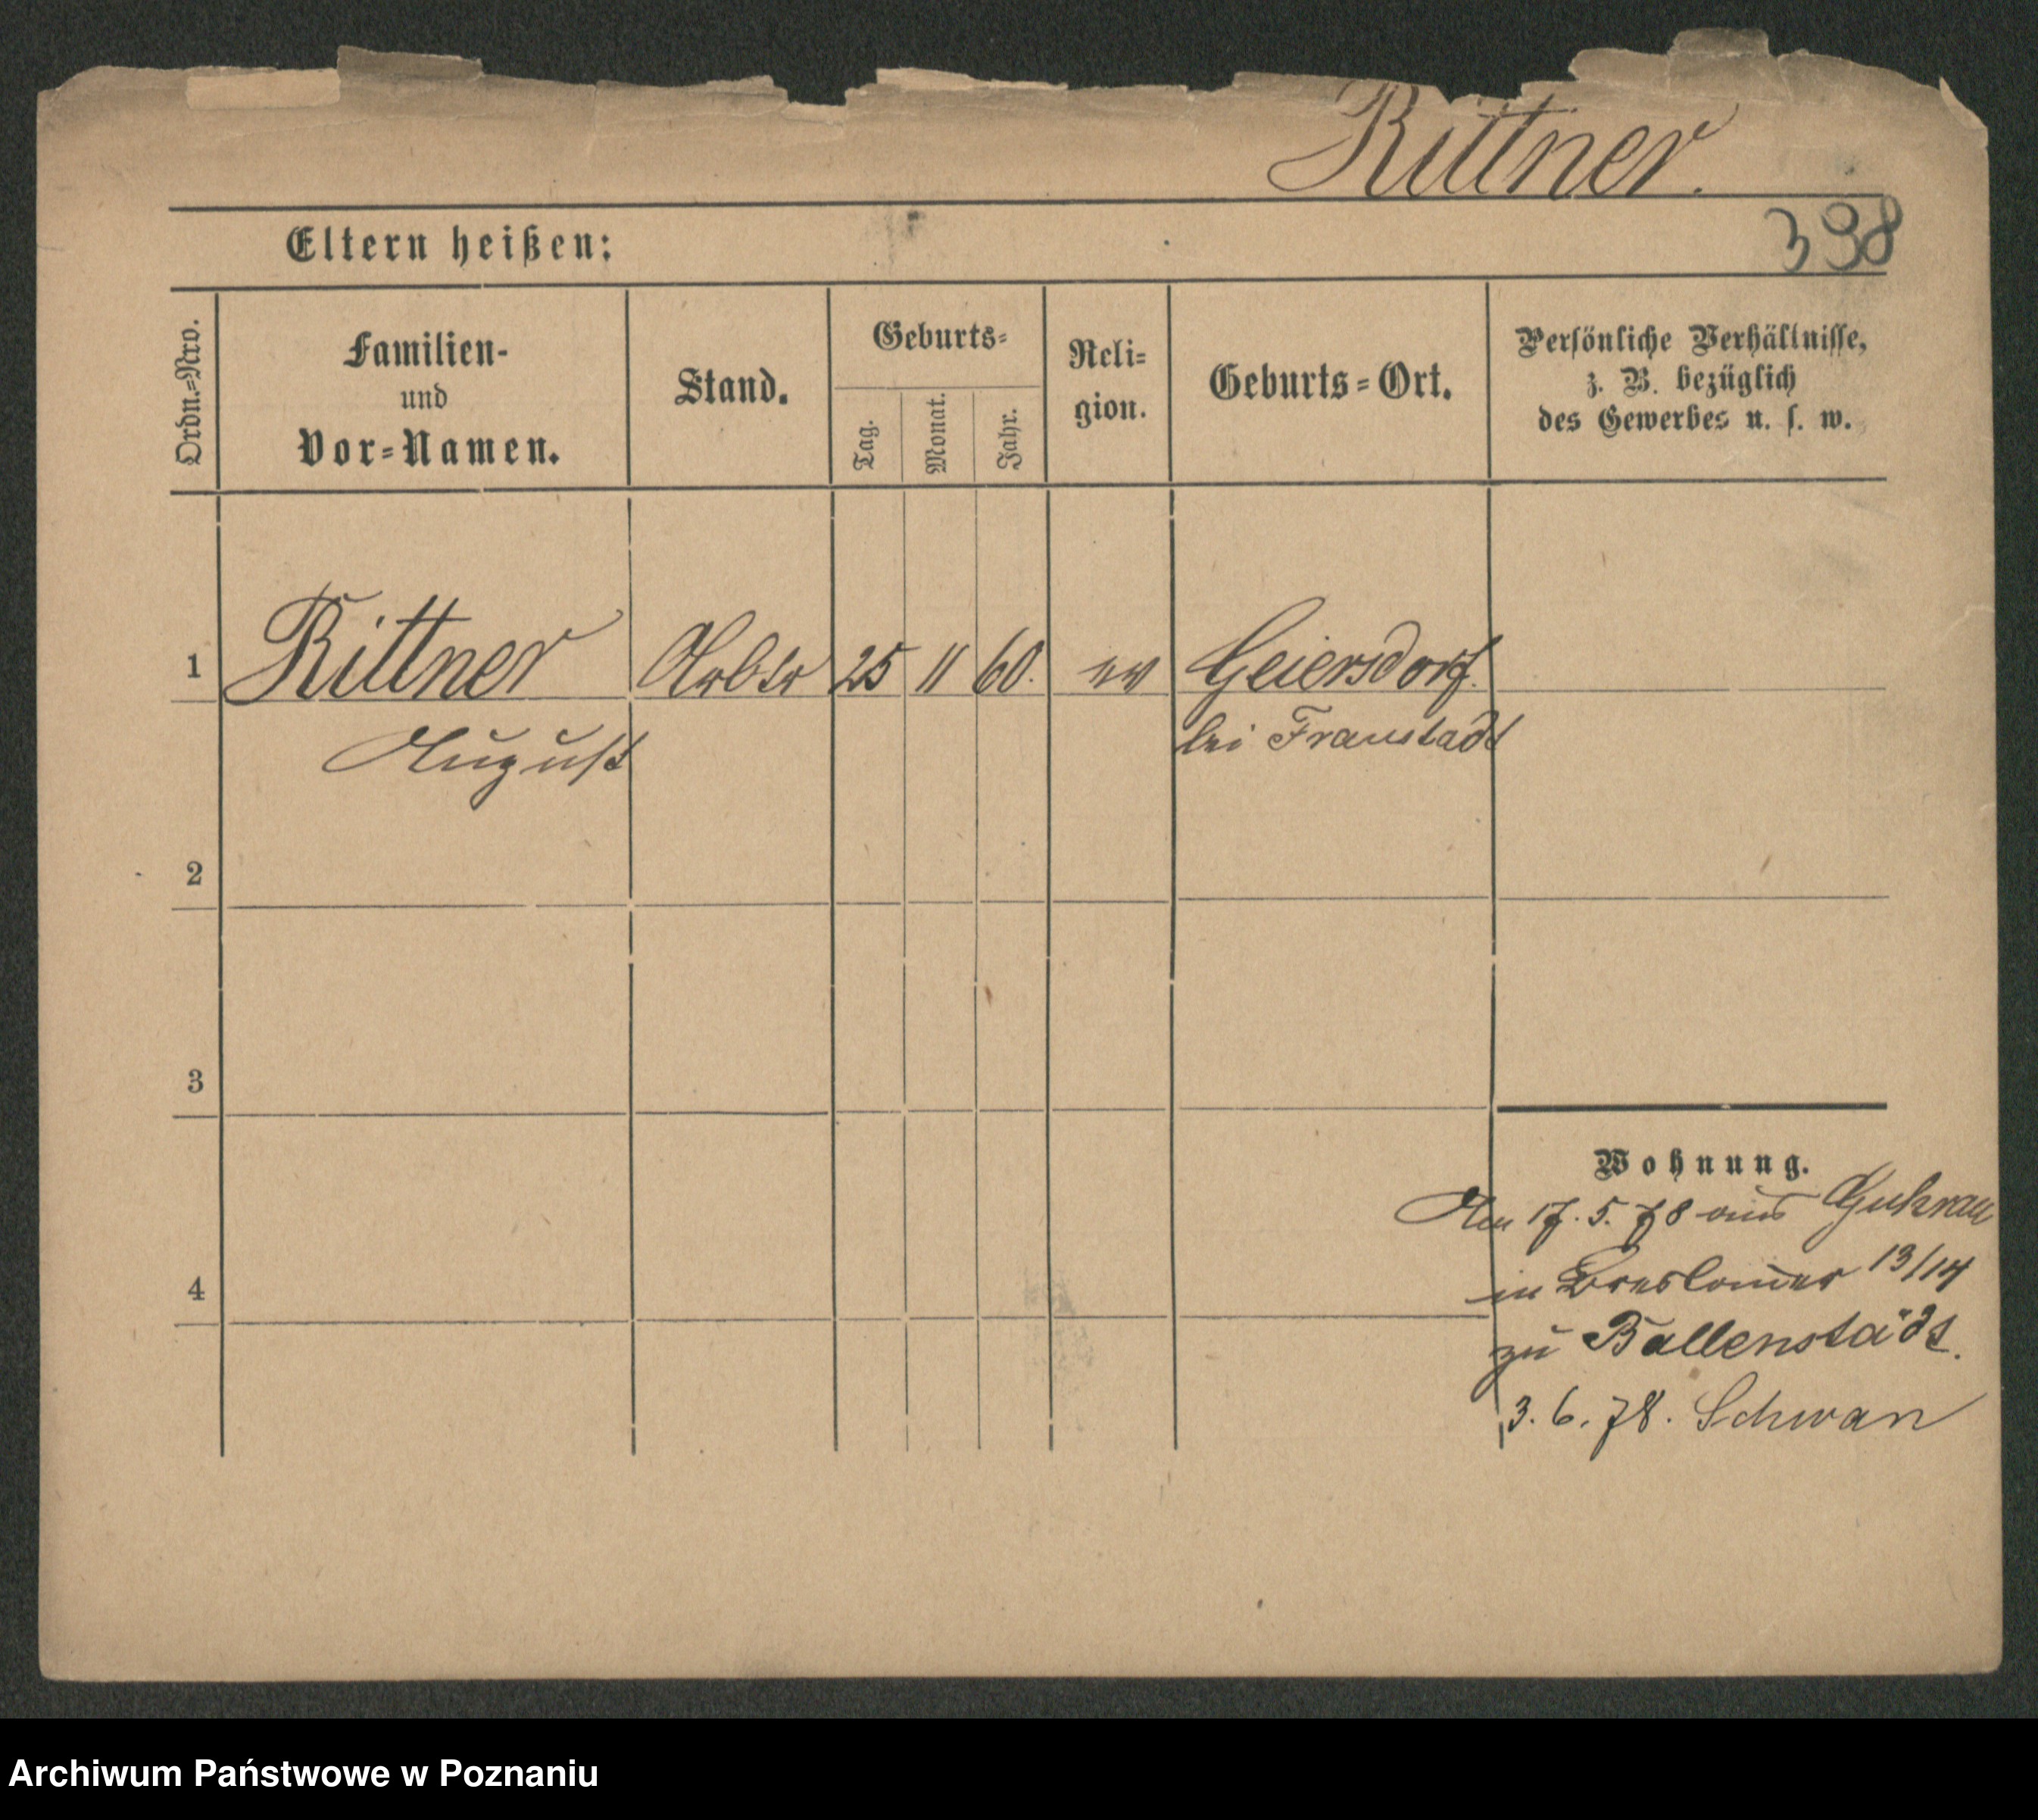 Rittner.
398
Eltern heißen:
Ordn.=Nro.
Familien-
und
Vor=Namen.
Stand.
Geburts=
Tag.
Monat.
Jahr.
Reli=
gion.
Geburts=Ort.
Persönliche Verhältnisse,
z. B. bezüglich
des Gewerbes u. s. w.
1 Rittner Arbtr 25 11 60. ev Geiersdorf
August bei Fraustadt
2
3
4
Wohnung.
Am 17. 5. 78 aus Guhrau
in Breslauer 13/14
zu Ballenstädt.
3. 6. 78. Schwan
Archiwum Państwowe w Poznaniu